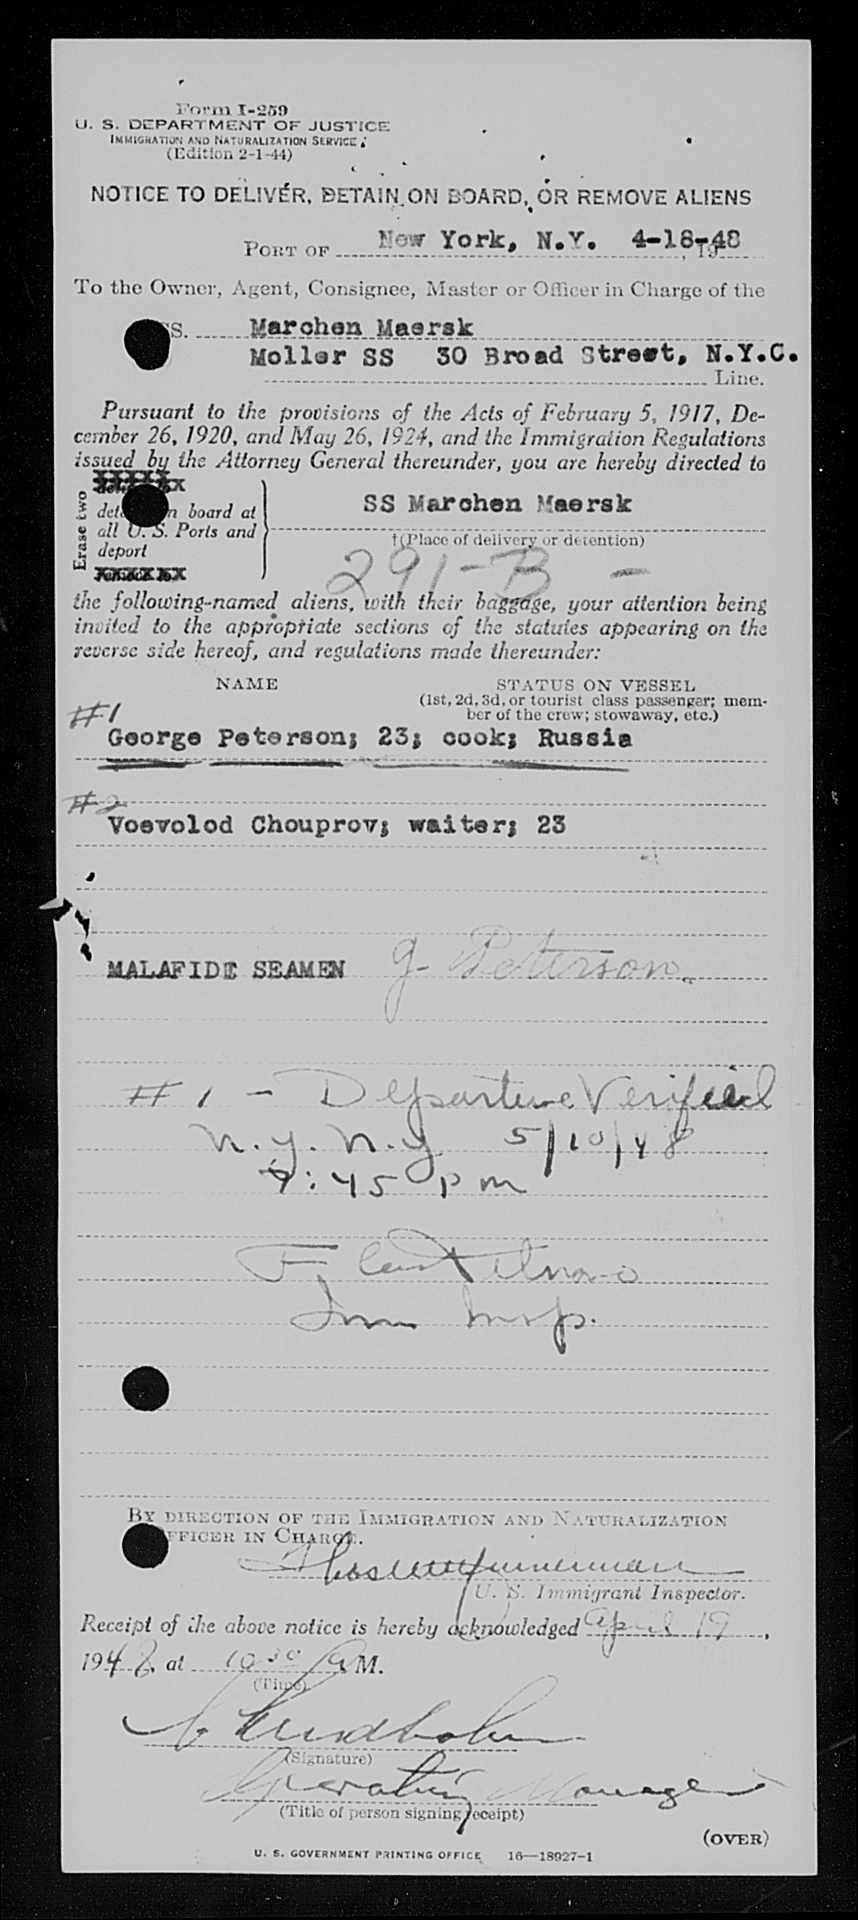 Form I-259
U. S. DEPARTMENT OF JUSTICE
IMMIGRATION AND NATURALIZATION SERVICE
(Edition 2-1-44)
NOTICE TO DELIVER, DETAIN ON BOARD, OR REMOVE ALIENS
PORT OF New York, N.Y. 4-18-48, 19
To the Owner, Agent, Consignee, Master or Officer in Charge of the
SS. Marchen Maersk
Moller SS 30 Broad Street, N.Y.C.
Line.
Pursuant to the provisions of the Acts of February 5, 1917, De-
cember 26, 1920, and May 26, 1924, and the Immigration Regulations
issued by the Attorney General thereunder, you are hereby directed to
Erase two
SS Marchen Maersk
on board at
all U. S. Ports and
deport
†(Place of delivery or detention)
291-B -
the following-named aliens, with their baggage, your attention being
invited to the appropriate sections of the statutes appearing on the
reverse side hereof, and regulations made thereunder:
NAME STATUS ON VESSEL
(1st, 2d, 3d, or tourist class passenger; mem-
ber of the crew; stowaway, etc.)
#1
George Peterson; 23; cook; Russia
#2
Voevolod Chouprov; waiter; 23
MALAFIDE SEAMEN g Peterson.
#1 - Departure Verified
N.Y. N.Y 5/10/48
9:45 pm
Imm Insp.
BY DIRECTION OF THE IMMIGRATION AND NATURALIZATION
OFFICER IN CHARGE.
U. S. Immigrant Inspector.
Receipt of the above notice is hereby acknowledged April 19,
1948, at 10 30 A M.
(Time)
(Signature)
Operating Manager
(Title of person signing receipt)
(OVER)
U. S. GOVERNMENT PRINTING OFFICE 16—18927-1